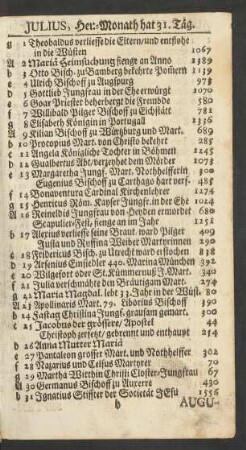 JULIUS, Heu-Monath hat 31. Täg.
g 1 Theobaldus verliesse die Eltern/und entflohe
in die Wüsten 1067
A 2 Mariä Heimsuchung fienge an Anno 1389
b 3 Otto Bisch. zu Bamberg bekehrte Pomern 1139
c 4 Ulrich Bischoff zu Augspurg 973
d 5 Gottlieb Jungfrau in der Ehe erwürgt 1070
e 6 Goar Priester beherbergt die Freunde 580
f 7 Willibald Pilger Bischoff zu Eichstätt 781
g 8 Elisabeth Königin in Portugall 1336
A 9 Kilian Bischoff zu Würtzburg und Mart. 689
b 10 Procopius Mart. von Christo bekehrt 285
c 11 Angela Königliche Tochter in Böhmen 1245
d 12 Gualbertus Abt/verzyhet dem Mörder 1073
e 13 Margaretha Jungf. Mart. Nothhelfferin 300
Eugenius Bischoff zu Carthago hart verf. 485
f 14 Bonaventura Cardinal Kirchenlehrer 1274
g 15 Henricus Röm. Kayser Jungfr. in der Ehe 1024
A 16 Reineldis Jungfrau von Heyden ermordet 680
Scapulier-Fest, fienge an im Jahr 1251
b 17 Alexius verliesse seine Braut, ward Pilger 409
Justa und Ruffina Weiber Martyrinnen 290
c 18 Fridericus Bisch. zu Utrecht ward erstochen 838
d 19 Arsenius Einsidler 440. Marina Münchin 392
e 20 Wilgefort oder St. Kümmernuß J. Mart. 340
f 21 Julia verschmähte den Bräutigam Mart. 274
g 22 Maria Magdal. lebt 31. Jahr in der Wüst. 80
A 23 Apollinaris Mart. 79. Liborius Bischoff 390
b 24 Fasttag Christina Jungf. grausam gemart. 300
c 25 Jacobus der grössere/ Apostel 44
Christoph zersetzt/ gebrennt und enthaupt 254
d 26 Anna Mutter Mariä
e 27 Pantaleon grosser Mart. und Nothhelffer 302
f 28 Nazarius und Celsus Martyrer 70
g 29 Martha Wirthin Christi Closter-Jungfrau 67
A 30 Germanus Bischoff zu Auxerre 430
b 31 Ignatius Stiffter der Societät JEsu 1556
b AUGU-